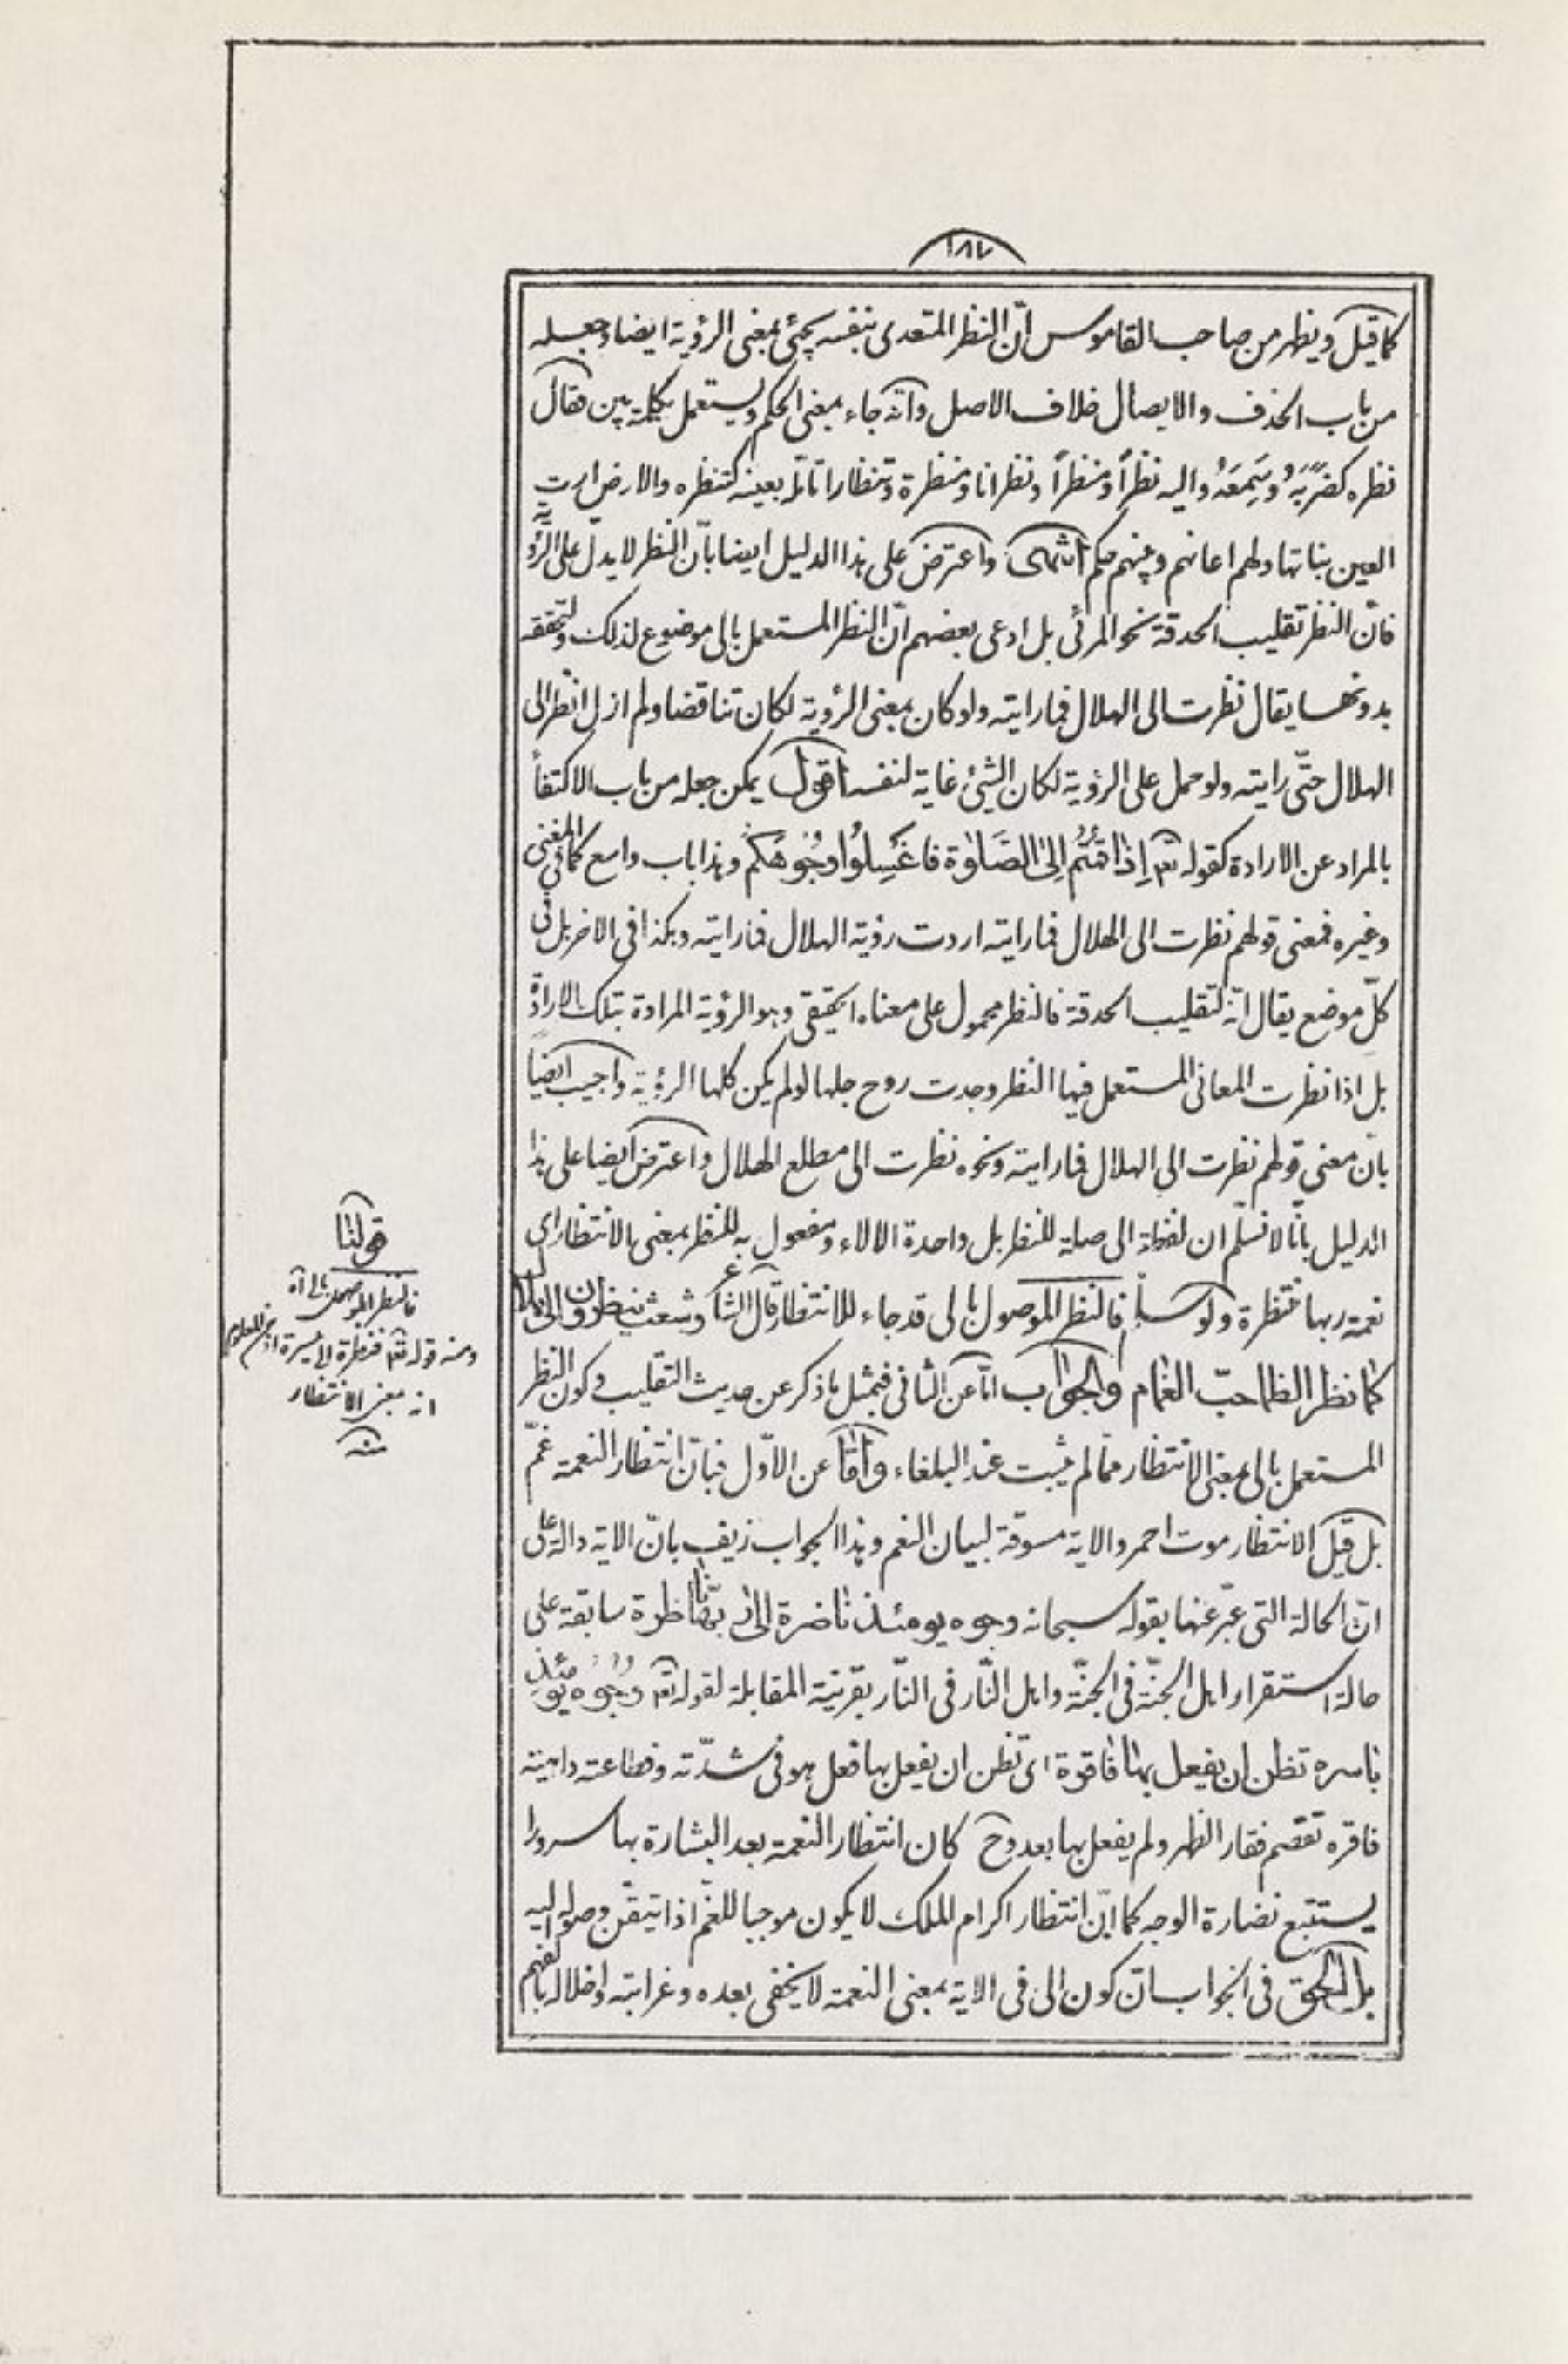 ١٨٧
كما قيل ويظهر من صاحب القاموس انّ النظر المتعدى بنفسه يجئ بمعنى الرؤية ايضا وجعله
من باب الحذف والايصال خلاف الاصل وانّه جاء بمعنى الحكم ويستعمل بكلمة بين فقال
نظره كضَرَبَهُ وسَمِعَهُ واليه نظراً ومنظراً ونظرانا ومنظرة وتنظارا تامّله بعينه كتنظره والارض ارت
العين نباتها ولهم اعانهم وبينهم حكم انتهى واعترض على هذا الدليل ايضا بانّ النظر لا يدلّ على الرؤية
فانّ النظر تقليب الحدقة نحو المرئى بل ادعى بعضهم انّ النظر المستعمل بالى موضوع لذلك ولتحققه
بدونها يقال نظرت الى الهلال فما رايته ولو كان بمعنى الرؤية لكان تناقضا ولم ازل انظر الى
الهلال حتّى رايته ولو حمل على الرؤية لكان الشئ غاية لنفسه اقول يمكن جعله من باب الاكتفأ
بالمراد عن الارادة كقوله تع إِذا قُمْتُمْ إِلىَ الصَّلوٰةِ فاغْسِلُوا وُجُوهَكُمْ وهذا باب واسع كما فى المغنى
وغيره فمعنى قولهم نظرت الى الهلال فما رايته اردت رؤية الهلال فما رايته وهكذا فى الاخر بل فى
كلّ موضع يقال انّه لتقليب الحدقة فالنظر محمول على معناه الحقيقى وهو الرؤية المرادة بتلك الارادة
بل اذا نظرت المعانى المستعمل فيها النظر وجدت روح جلها لو لم يكن كلها الرؤية واجيب ايضاً
بانّ معنى قولهم نظرت الى الهلال فما رايته ونحوه نظرت الى مطلع الهلال واعترض ايضا على هذا
الدليل بانّا لا نسلّم ان لفظة الى صلة للنظر بل واحدة الالاء ومفعول به للنظر بمعنى الانتظار اى
نعمة ربها منتظرة ولو سلم فالنظر الموصول بالى قد جاء للانتظار قال الشاع وشعث ينظرون الى بلال
كما نظر الظما حبّ الغمام والجواب امّا عن الثانى فبمثل ما ذكر عن حديث التقليب وكون النظر
المستعمل بالى بمعنى الانتظار ممّا لم يثبت عند البلغاء وامّا عن الاوّل فبانّ انتظار النعمة غمّ
بل قيل الانتظار موت احمر والاية مسوقة لبيان النعم وهذا الجواب زيف بانّ الاية دالة على
انّ الحالة التى عبّر عنها بقوله سبحانه وجوه يومئذ ناضرة الى ربّها ناظرة سابقة على
حالة استقرار اهل الجنّة فى الجنّة واهل النّار فى النّار بقرينة المقابلة لقوله تع وُجُوه يومئذٍ
باسرة تظن ان يفعل بها فاقرة اى تظن ان يفعل بها فعل هو فى شدّته وفظاعته داهية
فاقرة تقصم فقار الظهر ولم يفعل بها بعد وح كان انتظار النعمة بعد البشارة بها سرورا
يستتبع نضارة الوجه كما انّ انتظار اكرام الملك لا يكون موجبا للغمّ اذا تيقّن وصوله اليه
بل الحق فى الجواب انّ كون الى فى الاية بمعنى النعمة لا يخفى بعده وغرابته واخلاله بالفهم
قولنا
فالنظر الموصول بالى اه
ومنه قوله تع فنظرة الى ميسرة اذ من المعلوم
انه بمعنى الانتظار
منه